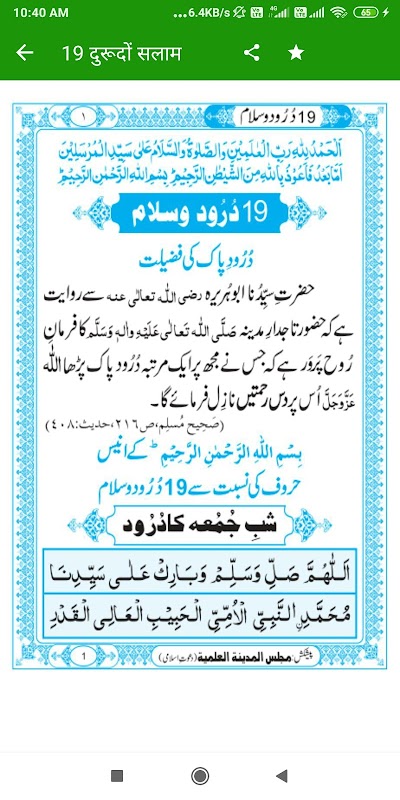 10:40 AM
...6.4KB/s
4G
65
19 दुरूदों सलाम
١
19 دُرُود و سلام
اَلْحَمْدُ لِلّٰہِ رَبِّ الْعٰلَمِیْنَ وَالصَّلٰوۃُ وَالسَّلَامُ عَلٰی سَیِّدِ الْمُرْسَلِیْنَ
اَمَّا بَعْدُ فَاَعُوْذُ بِاللّٰہِ مِنَ الشَّیْطٰنِ الرَّجِیْمِ ؕ بِسْمِ اللّٰہِ الرَّحْمٰنِ الرَّحِیْمِ ؕ
19 دُرُود و سلام
دُرُودِ پاک کی فضیلت
حضرتِ سَیِّدُنا ابوہُریرہ رضی اللہ تعالٰی عنہ سے روایت
ہے کہ حضور تاجدارِ مدینہ صَلَّی اللہ تَعَالٰی عَلَیْہِ وَاٰلِہٖ وَسَلَّم کا فرمانِ
رُوح پَرْوَر ہے کہ جس نے مجھ پر ایک مرتبہ دُرُودِ پاک پڑھا اللہ
عَزَّوَجَلَّ اُس پر دس رحمتیں نازِل فرمائے گا۔
(صَحِیح مُسلِم،ص٢١٦،حدیث:٤٠٨)
بِسْمِ اللّٰہِ الرَّحْمٰنِ الرَّحِیْمِ ؕ کے اُنیس
حروف کی نسبت سے 19 دُرُود و سلام
شبِ جُمُعہ کا دُرُود
اَللّٰھُمَّ صَلِّ وَسَلِّمْ وَبَارِكْ عَلٰی سَیِّدِنَا
مُحَمَّدِنِ النَّبِیِّ الْاُمِّیِّ الْحَبِیْبِ الْعَالِی الْقَدْرِ
1
پیشکش: مجلس المدینة العلمیة (دعوتِ اسلامی)